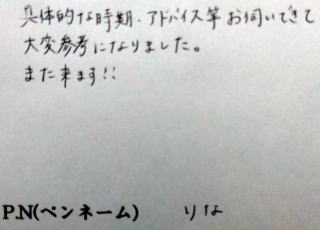 具体的な時期、アドバイス等お伺いできて
大変参考になりました。
また来ます!!
P.N(ペンネーム) りな